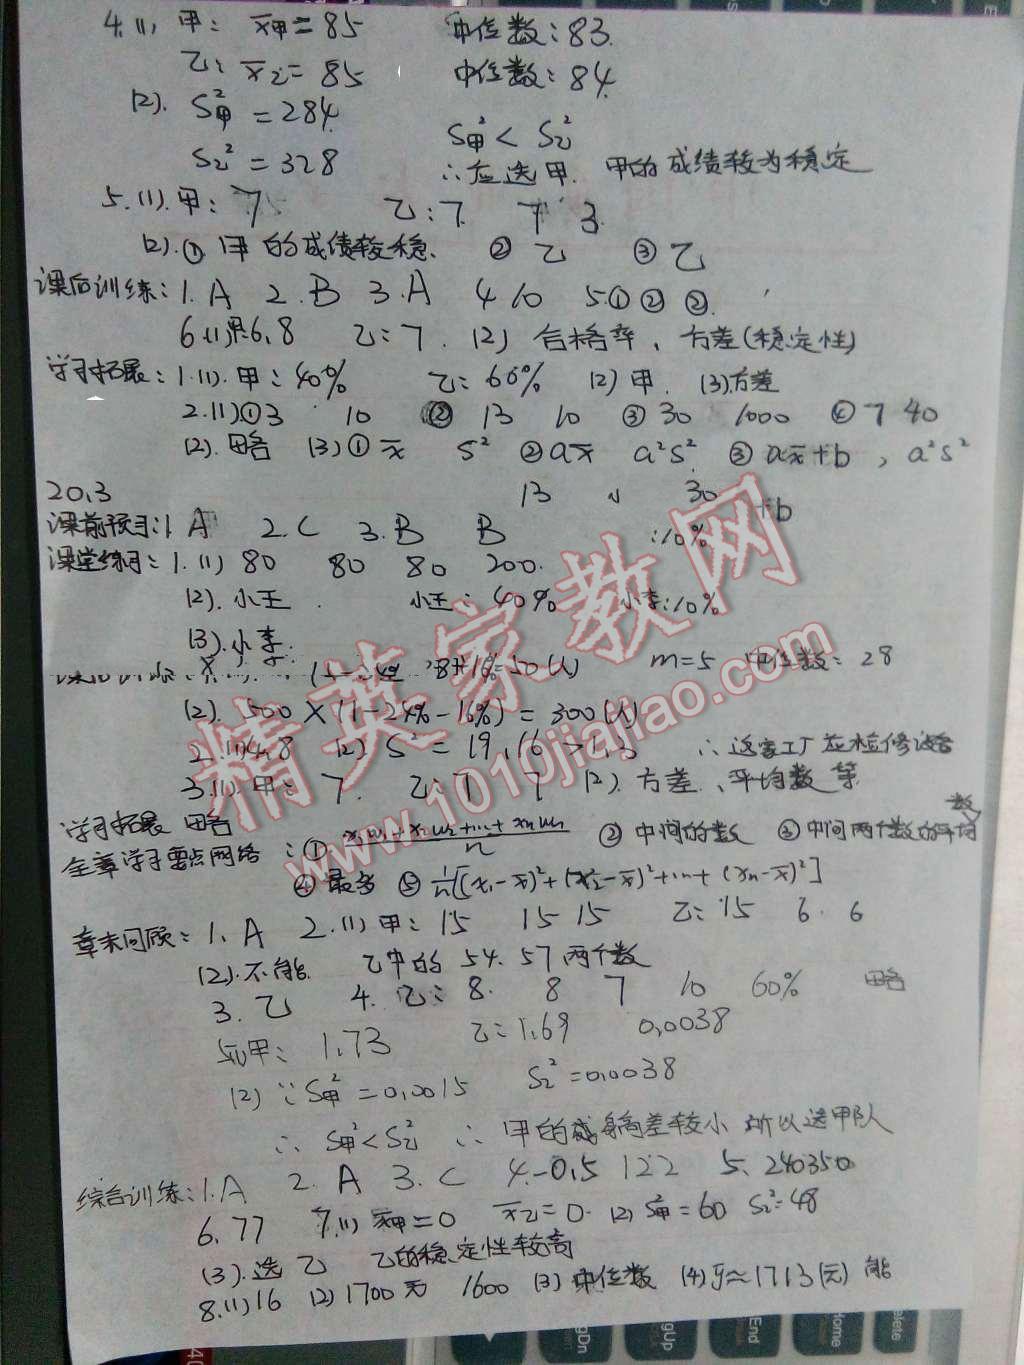 4.(1) 甲: x̄甲=85 中位数:83.
乙: x̄乙=85 中位数:84.
(2). S甲²=284. S甲²<S乙²
S乙²=328 ∴应选甲. 甲的成绩较为稳定
5.(1).甲: 7 乙:7. 7 3.
(2).① 甲的成绩较稳. ② 乙 ③ 乙
课后训练:1.A 2.B 3.A 4.10 5.①②②.
6.(1)甲6.8 乙:7. (2) 合格率、方差(稳定性)
学习拓展:1.(1).甲:40% 乙:60% (2)甲. (3).方差
2.(1)①3 10 ② 13 10 ③ 30 1000 ④ 7 40
(2).略 (3)① x̄ S² ②ax̄ a²S². ③ ax̄+b, a²S²
20.3 13 30 +b
课前预习:1 A 2.C 3.B B :10%
课堂练习:1.(1) 80 80 80 200.
(2).小王. 小王:40% 小李:10%
(3).小李.
8÷16%=50(人) m=5 中位数:28
(2).500×(1-24%-16%)=300(人)
2.(1)4.8 (2)S²=19.16>1.3 ∴这家工厂应检修设备
3.(1).甲: 7. 乙:7 7 (2).方差、平均数等.
学习拓展 略
全章学习要点网络:① x₁w₁+x₂w₂+…+xₙwₙ/n ② 中间的数 ③中间两个数的平均数
④ 最多 ⑤ 1/n[(x₁-x̄)²+(x₂-x̄)²+…+(xₙ-x̄)²]
章末回顾:1.A 2.(1)甲:15 15 15 乙:15 6. 6
(2).不能. 乙中的 54.57两个数
3.乙 4.乙:8. 8 7 10 60% 略
5.(1)甲: 1.73 乙:1.69 0.0038
(2)∵S甲²=0.0015 S乙²=0.0038
∴S甲²<S乙² ∴甲的身高差较小 所以选甲队
综合训练:1.A 2.A 3.C 4.-0.5 122 5.240350
6.77 7.(1) x̄甲=0 x̄乙=0. (2) S甲²=60 S乙²=48
(3).选乙 乙的稳定性较高
8.(1)16 (2)1700元 1600 (3)中位数 (4)ȳ≈1713(元) 能
精英家教网
www.1010jiajiao.com
PgDn
PgUp
End
Home